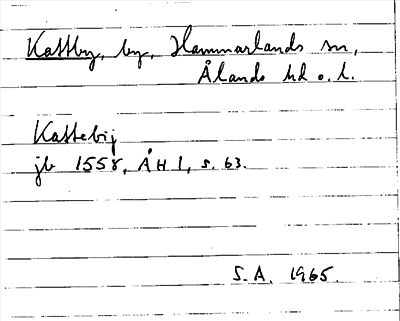 Kattby, by, Hammarlands sn,
Ålands hd o. l.
Kattebij
jb 1558, ÅH 1, s. 63.
S.A. 1965.